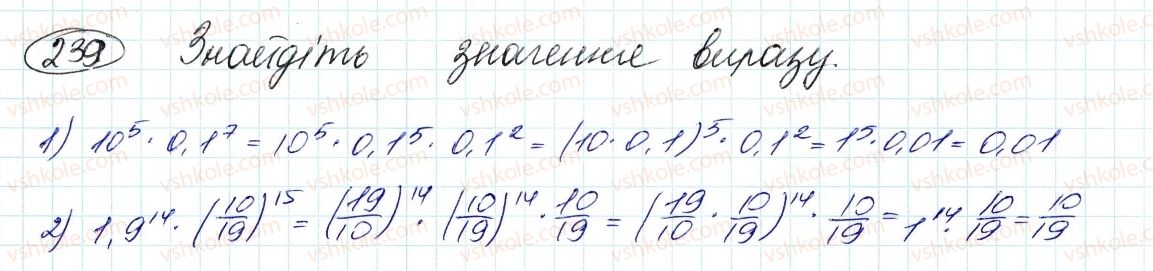 239 Знайдіть значення виразу.
1) 10⁵ · 0,1⁷ = 10⁵ · 0,1⁵ · 0,1² = (10 · 0,1)⁵ · 0,1² = 1⁵ · 0,01 = 0,01
2) 1,9¹⁴ · (10/19)¹⁵ = (19/10)¹⁴ · (10/19)¹⁴ · 10/19 = (19/10 · 10/19)¹⁴ · 10/19 = 1¹⁴ · 10/19 = 10/19